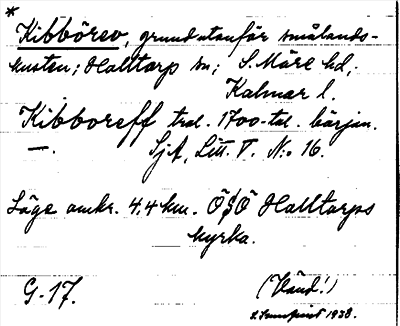 *
Kibbörev, grund utanför smålands-
kusten; Halltorp sn; S. Möre hd,
Kalmar l.
Kibboreff trol. 1700-tal. början.
—. SjA, Litt. T. N:o 16.
Läge omkr. 4.4 km. ÖSÖ Halltorps
kyrka.
G-17. (Vänd!)
1938.